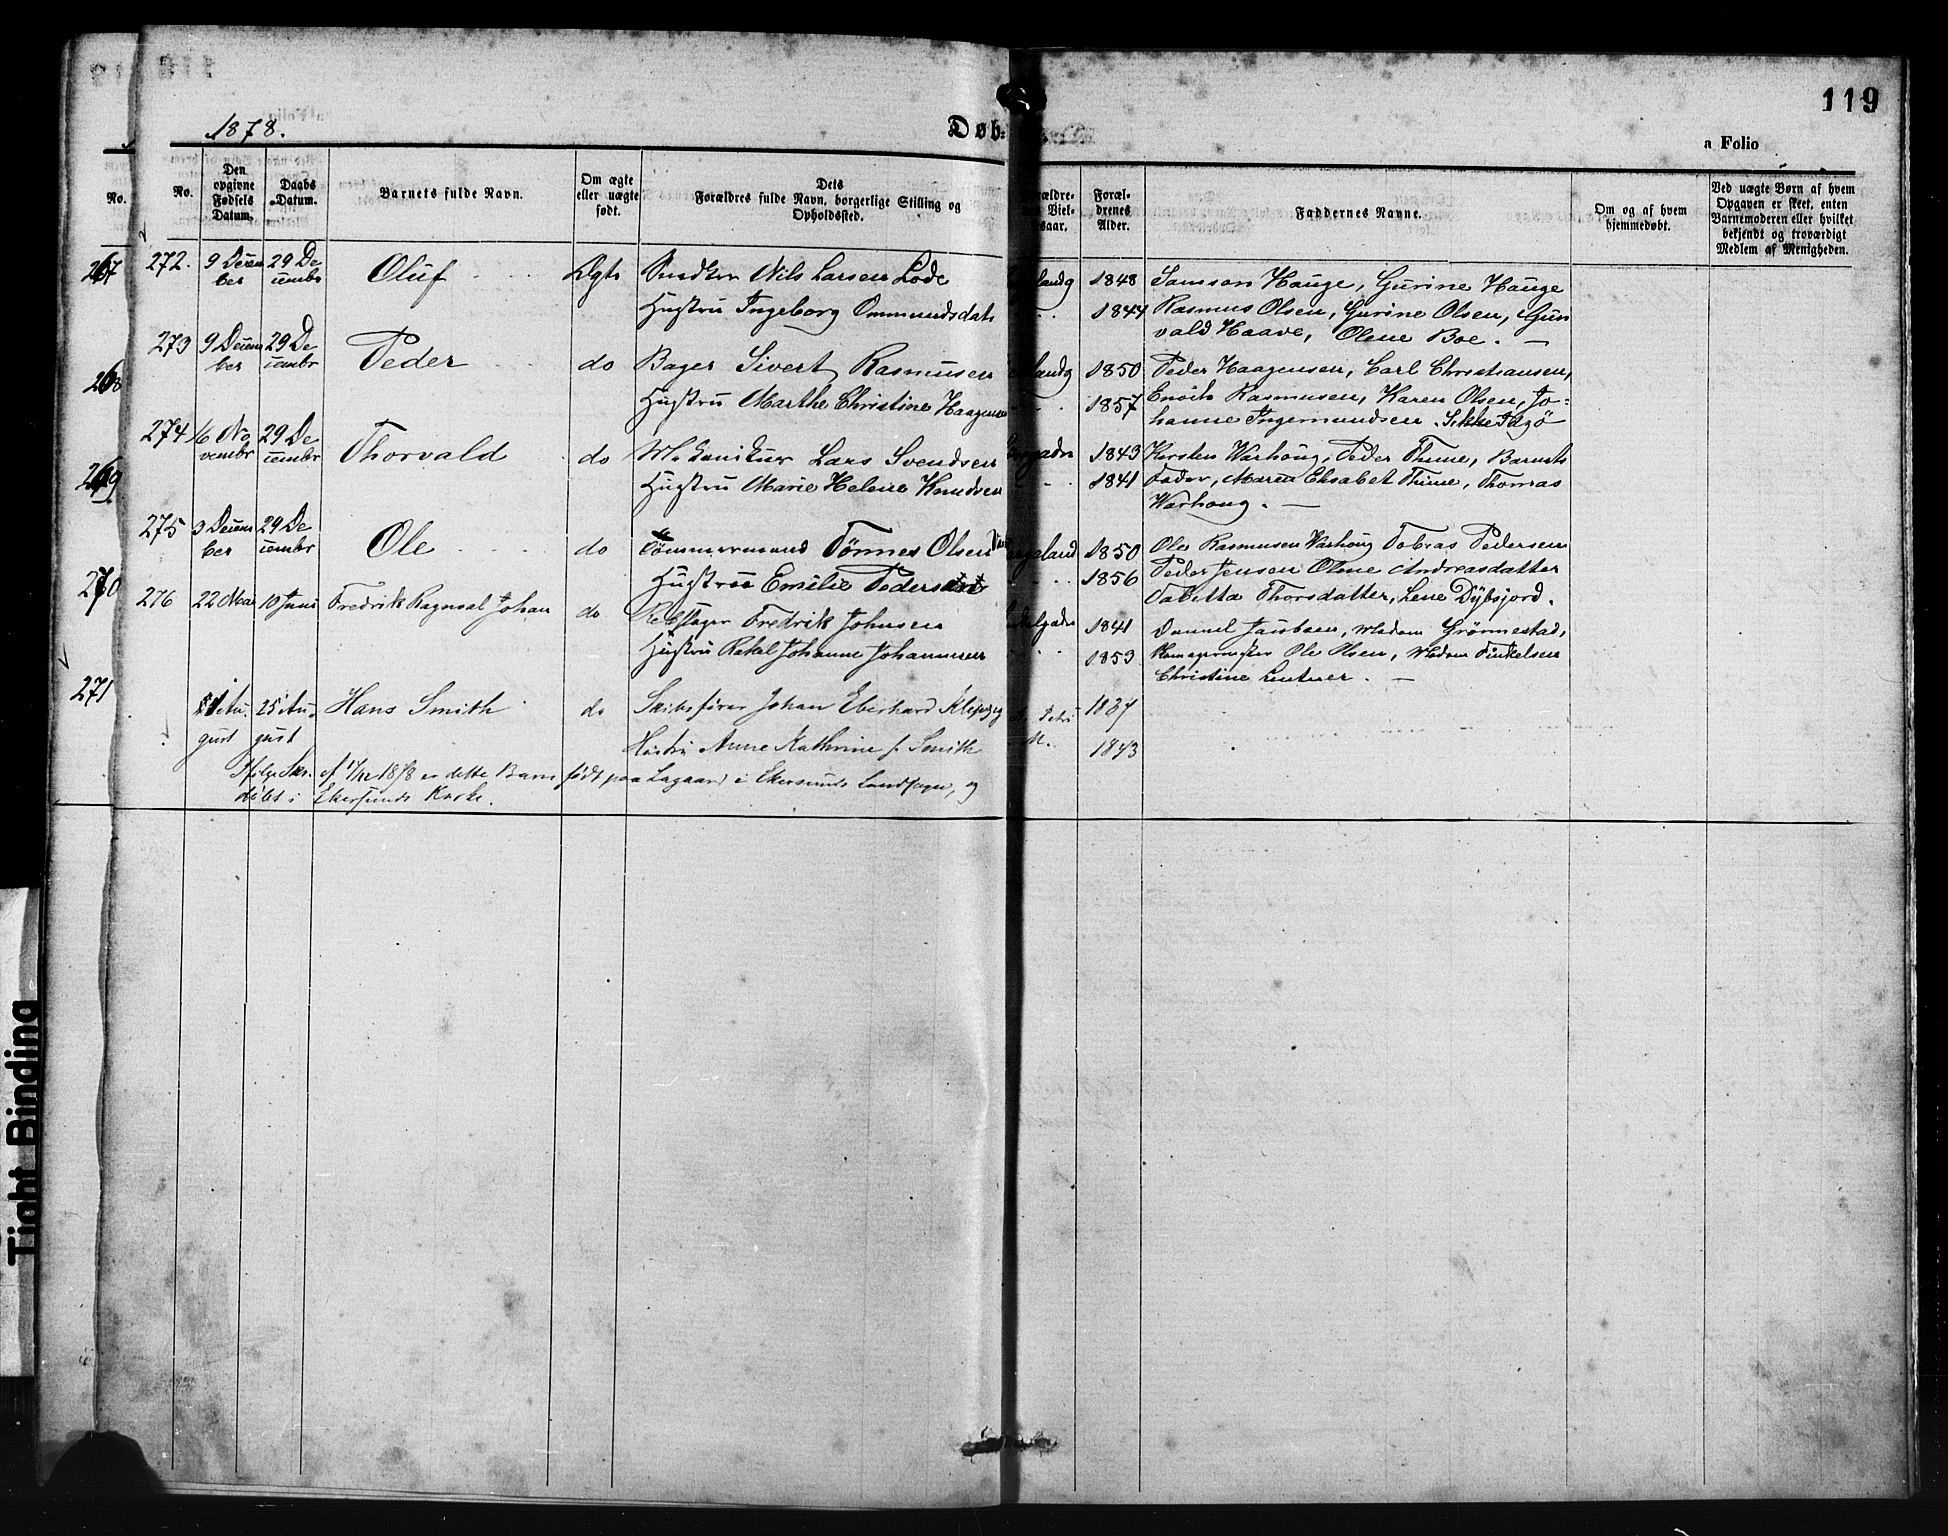 119
1878.
Døb
a Folio
No.
No.
Den opgivne Fødsels Datum.
Daabs Datum.
Barnets fulde Navn.
Om ægte eller uægte født.
Dets Forældres fulde Navn, borgerlige Stilling og Opholdssted.
Foræl-drenes Alder.
Faddernes Navne.
Om og af hvem hjemmedøbt.
Ved uægte Børn af hvem Opgaven er skeet, enten Barnemoderen eller hvilket bekjendt og troværdigt Medlem af Menigheden.
267
268
269
270
271
272. 9 Decem 29 De Oluf Ægte Snedker Nils Larsen Lode 1848 Samson Hauge, Gurine Hauge
ber cembr Hustru Ingeborg Ommundsdatr 1844 Rasmus Olsen, Gurine Olsen, Gun
vald Haave, Olene Boe. —
273 9 Decem 29 De Peder do Bager Sivert Rasmusen 1850 Peder Haagensen, Carl Christiansen,
ber cembr Hustru Marthe Christine Haagens 1857 Enoch Rasmusen, Karen Olsen, Jo-
hanne Ingemundsen.
274 16 No 29 De Thorvald do Mekanikus Lars Svendsen 1843 Karsten Warhoug, Peder Thime, Barnets
vembr cembr Hustru Marie Helene Knudsen 1841 Fader, Maren Elisabet Thime, Thomas
Warhoug. —
275 3 Decem 29 De Ole do Tømmermand Tönnes Olsen 1850 Ole Rasmusen Warhoug Tobias Pedersen
ber cembr Hustru Emilie Pedersdat 1856 Peder Jensen Olene Andreasdatter
Tabitta Thorsdatter, Lene Dybsjord.
276 22 Mai 10 Juni Fredrik Ragnval Johan do Rebslager Fredrik Johnsen 1841 Daniel Jacobsen, Madam Grönnestad,
Hustru Rakel Johanne Johannesen 1853 Ole Olsen, Madam Finkelsen
Christine Lentner. —
Au- 25 Au- Hans Smith do Skibsfører Johan Eberhard 1837
gust gust Hustru Anne Kathrine f. Smith 1843
Ifølge Skr. af 1/12 1878 er dette Barn født paa Lagaard i Ekersunds Landsogn, og
døbt i Ekersunds Kirke.
Tight Binding